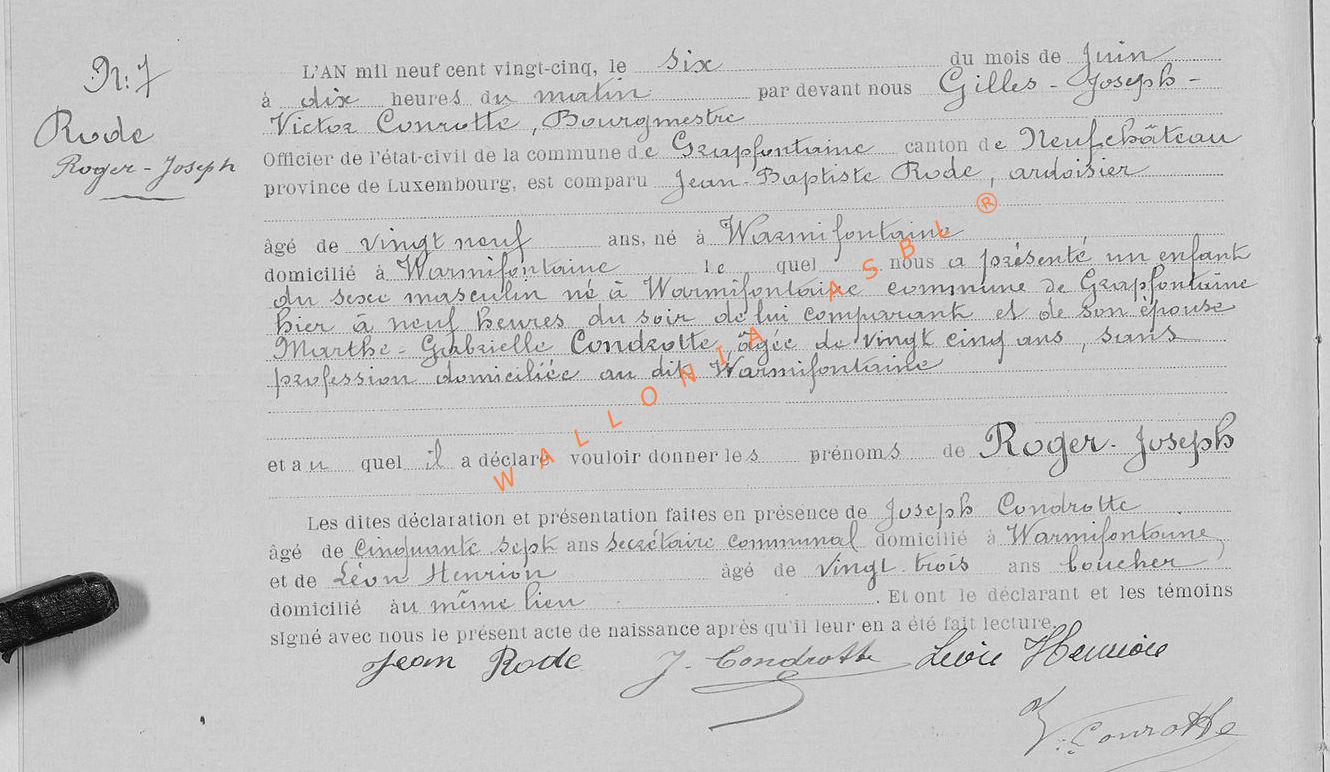 N: 7
Rode
Roger-Joseph
L'AN mil neuf cent vingt-cinq, le six du mois de Juin
à dix heures du matin par devant nous Gilles-Joseph-
Victor Conrotte, Bourgmestre
Officier de l'état-civil de la commune de Grapfontaine canton de Neufchâteau
province de Luxembourg, est comparu Jean-Baptiste Rode, ardoisier
âgé de vingt neuf ans, né à Warmifontaine
domicilié à Warmifontaine lequel nous a présenté un enfant
du sexe masculin né à Warmifontaine commune de Grapfontaine
hier à neuf heures du soir de lui comparant et de son épouse
Marthe-Gabrielle Condrotte, âgée de vingt cinq ans, sans
profession domiciliée au dit Warmifontaine
et au quel il a déclaré vouloir donner les prénoms de Roger-Joseph
Les dites déclaration et présentation faites en présence de Joseph Condrotte
âgé de cinquante sept ans secrétaire communal domicilié à Warmifontaine
et de Léon Henrion âgé de vingt-trois ans boucher
domicilié au même lieu. Et ont le déclarant et les témoins
signé avec nous le présent acte de naissance après qu'il leur en a été fait lecture.
Jean Rode J. Condrotte Léon Henrion
V. Conrotte
WALLONIA ASBL ®